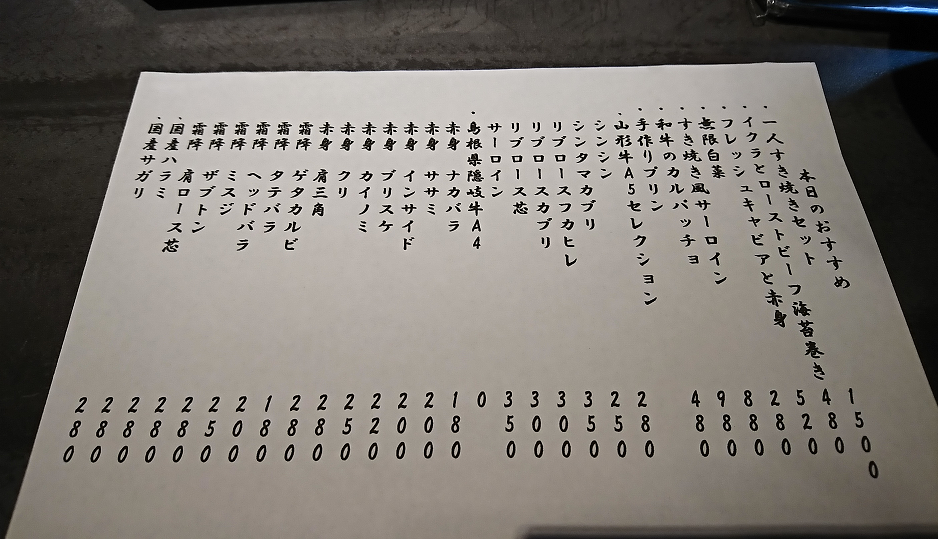 本日のおすすめ
・一人すき焼きセット 1500
・イクラとローストビーフ海苔巻き 480
・フレッシュキャビアと赤身 520
・無限白菜 280
・すき焼き風サーロイン 880
・和牛のカルパッチョ 980
・手作りプリン 480
・山形牛A5セレクション
シンシン 280
シンタマカブリ 250
リブロースフカヒレ 350
リブロースカブリ 300
リブロース芯 300
サーロイン 350
・島根県隠岐牛A4 0
赤身 ナカバラ 180
赤身 ササミ 200
赤身 インサイド 200
赤身 ブリスケ 220
赤身 カイノミ 250
赤身 クリ 280
赤身 肩三角 280
霜降 ゲタカルビ 180
霜降 タテバラ 200
霜降 ヘッドバラ 250
霜降 ミスジ 280
霜降 ザブトン 280
霜降 肩ロース芯 280
・国産ハラミ 280
・国産サガリ 280